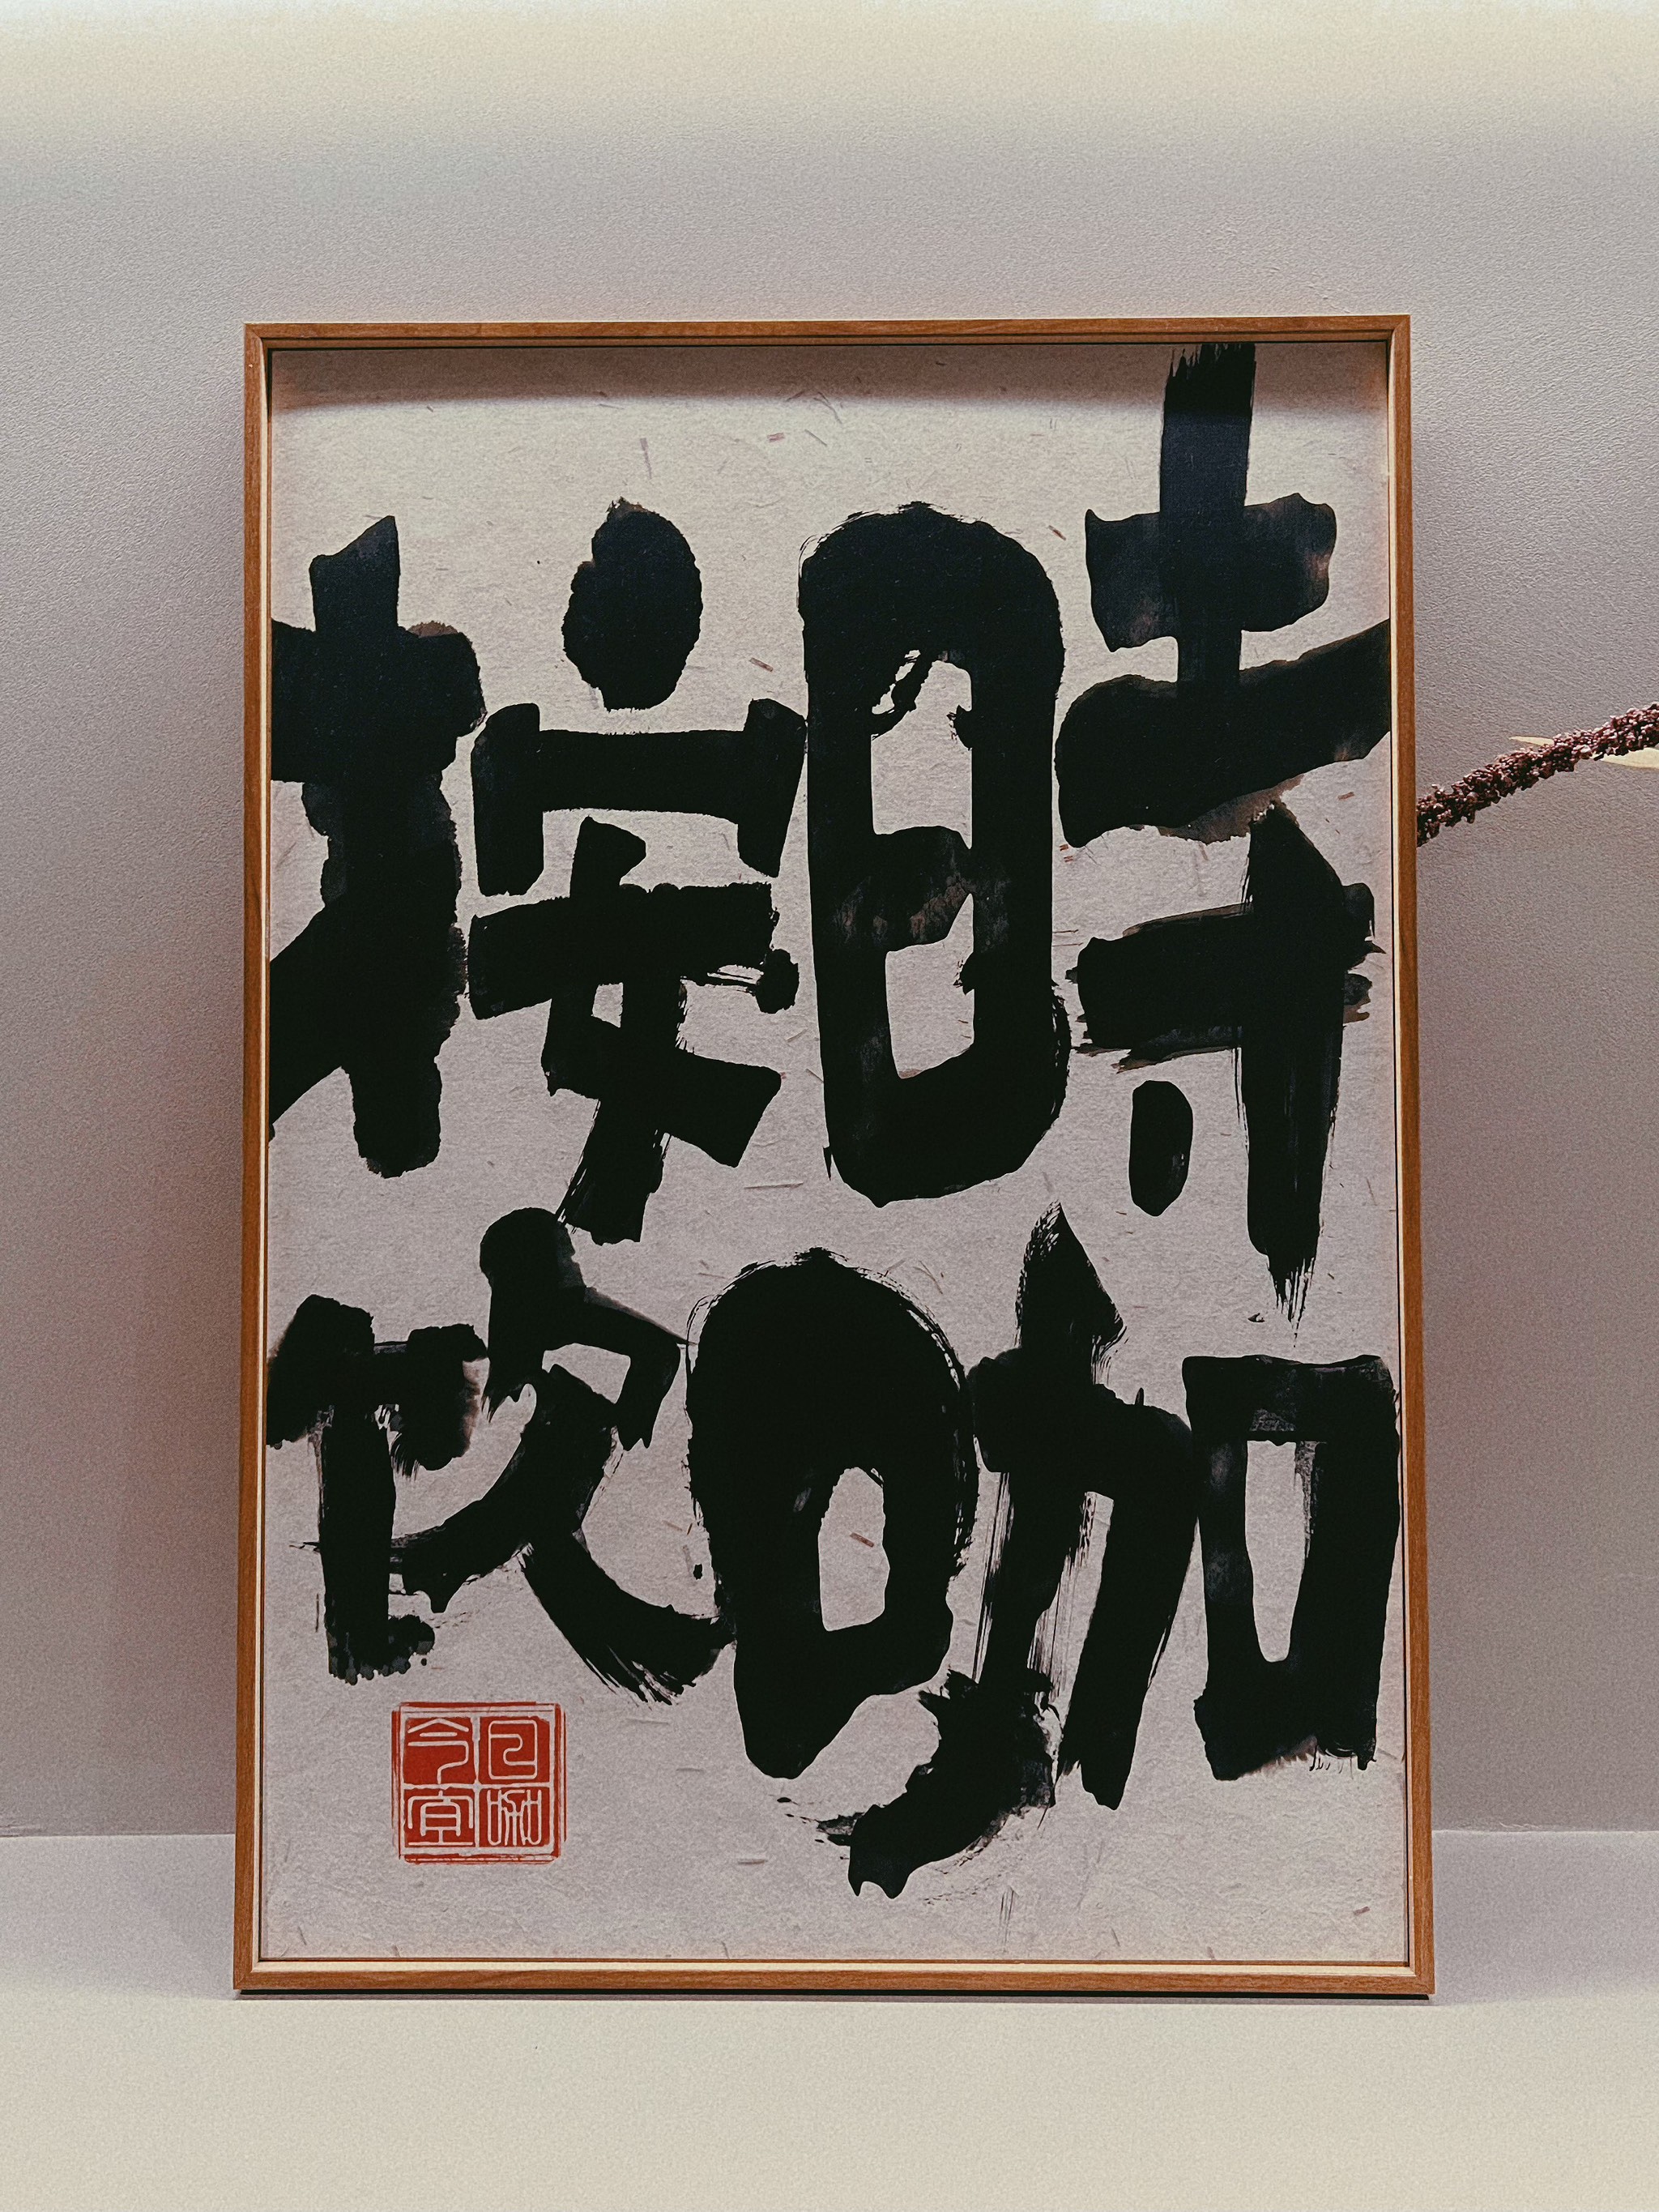 按時
饮咖
今日
宜咖